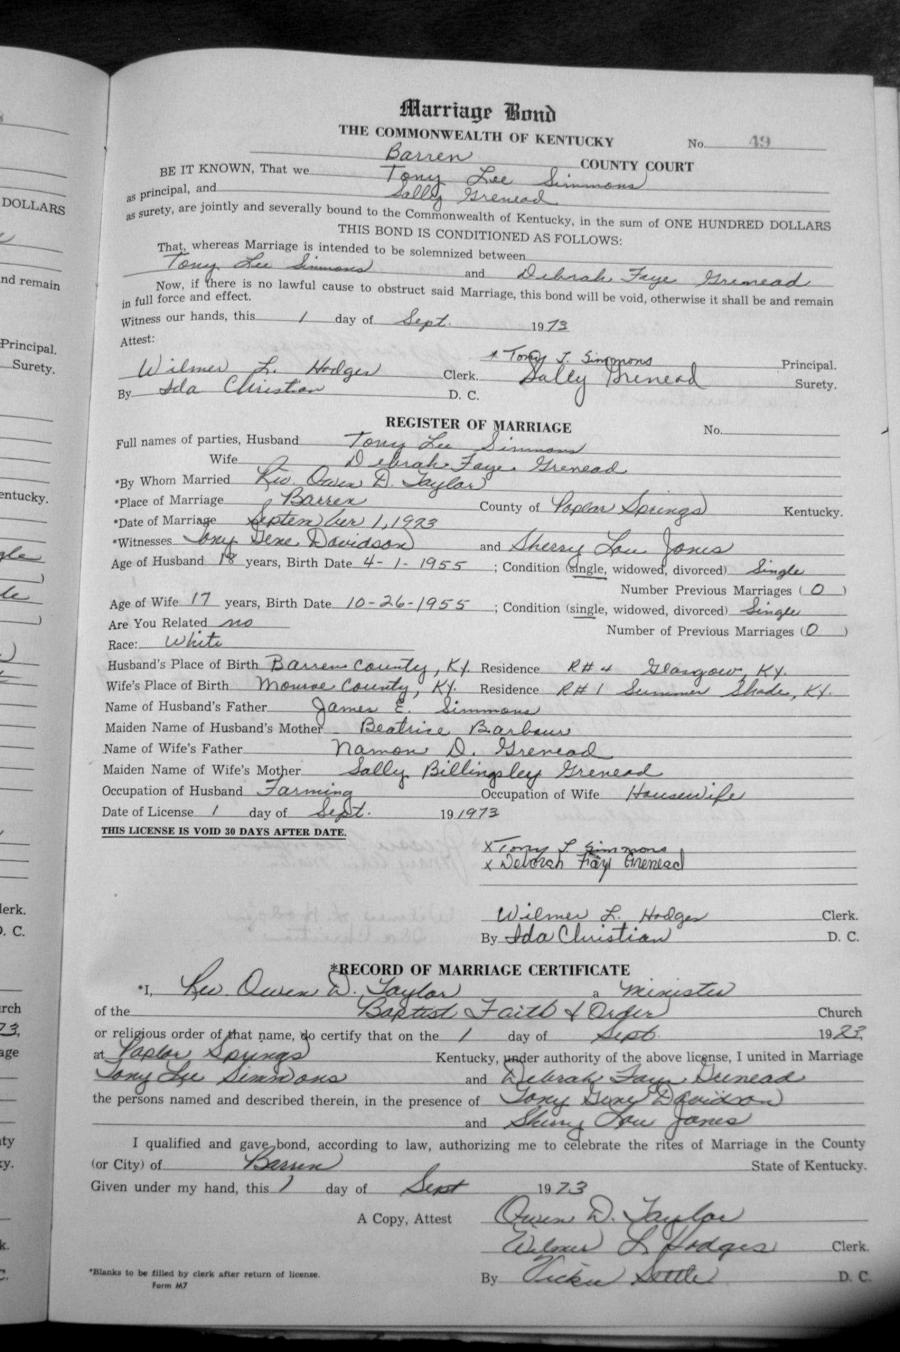 Marriage Bond
THE COMMONWEALTH OF KENTUCKY No. 49
Barren COUNTY COURT
BE IT KNOWN, That we Tony Lee Simmons
as principal, and Sally Grenead
as surety, are jointly and severally bound to the Commonwealth of Kentucky, in the sum of ONE HUNDRED DOLLARS
THIS BOND IS CONDITIONED AS FOLLOWS:
That, whereas Marriage is intended to be solemnized between
Tony Lee Simmons and Debrah Faye Grenead
Now, if there is no lawful cause to obstruct said Marriage, this bond will be void, otherwise it shall be and remain
in full force and effect.
Witness our hands, this 1 day of Sept. 1973
Attest:
x Tony L Simmons Principal.
Wilmer L. Hodges Clerk. Sally Grenead Surety.
By Ida Christian D. C.
REGISTER OF MARRIAGE No.
Full names of parties, Husband Tony Lee Simmons
Wife Debrah Faye Grenead
*By Whom Married Rev. Owen D. Taylor
*Place of Marriage Barren County of Poplar Springs Kentucky.
*Date of Marriage September 1, 1973
*Witnesses Tony Gene Davidson and Sherry Lou Jones
Age of Husband 18 years, Birth Date 4-1-1955 ; Condition (single, widowed, divorced) Single
Number Previous Marriages (0)
Age of Wife 17 years, Birth Date 10-26-1955 ; Condition (single, widowed, divorced) Single
Are You Related no Number of Previous Marriages (0)
Race: White
Husband's Place of Birth Barren County, Ky. Residence R#4 Glasgow, Ky.
Wife's Place of Birth Monroe County, Ky. Residence R#1 Summer Shade, Ky.
Name of Husband's Father James E. Simmons
Maiden Name of Husband's Mother Beatrice Barbour
Name of Wife's Father Namon D. Grenead
Maiden Name of Wife's Mother Sally Billingsley Grenead
Occupation of Husband Farming Occupation of Wife Housewife
Date of License 1 day of Sept. 19 1973
THIS LICENSE IS VOID 30 DAYS AFTER DATE.
x Tony L Simmons
x Deborah Faye Grenead
Wilmer L. Hodges Clerk.
By Ida Christian D. C.
*RECORD OF MARRIAGE CERTIFICATE
*I, Rev. Owen D. Taylor a Minister
of the Baptist Faith & Order Church
or religious order of that name, do certify that on the 1 day of Sept. 1973,
at Poplar Springs Kentucky, under authority of the above license, I united in Marriage
Tony Lee Simmons and Debrah Faye Grenead
the persons named and described therein, in the presence of Tony Gene Davidson
and Sherry Lou Jones
I qualified and gave bond, according to law, authorizing me to celebrate the rites of Marriage in the County
(or City) of Barren State of Kentucky.
Given under my hand, this 1 day of Sept 1973
A Copy, Attest Owen D. Taylor
Wilmer L Hodges Clerk.
*Blanks to be filled by clerk after return of license. By Vickie Settle D. C.
Form M7
DOLLARS
nd remain
Principal.
Surety.
entucky.
lerk.
D. C.
rch
73,
age
ty
ky.
k.
C.